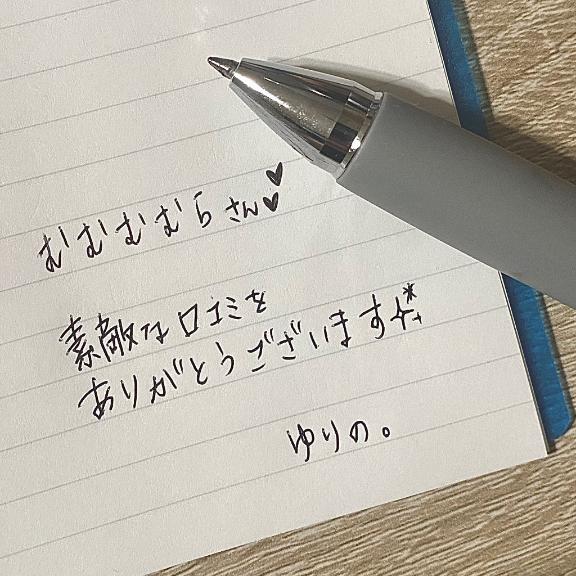 むむむむらさん♥♥
素敵な口コミを
ありがとうございます
ゆりの。